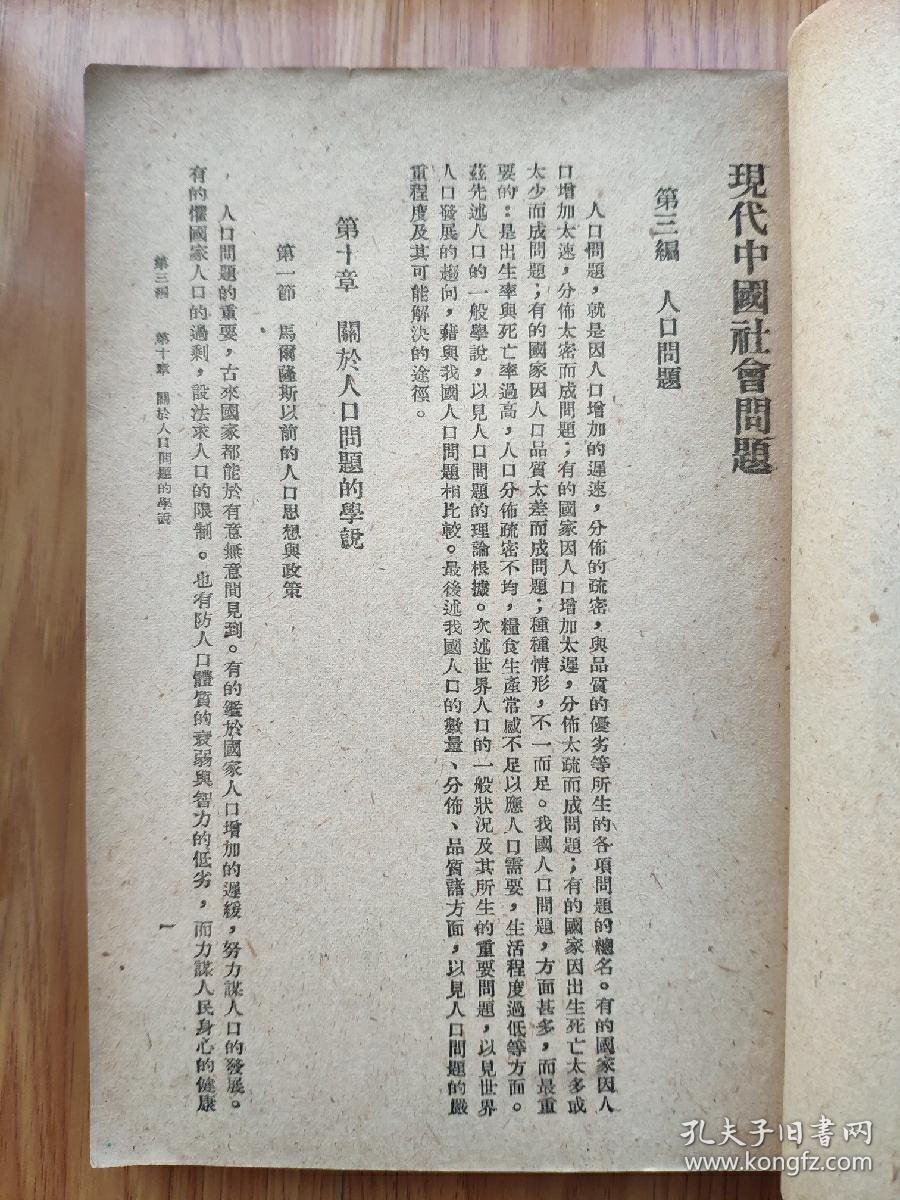 現代中國社會問題
第三編　人口問題
人口問題，就是因人口增加的遲速，分佈的疏密，與品質的優劣等所生的各項問題的總名。有的國家因人
口增加太速，分佈太密而成問題；有的國家因人口增加太遲，分佈太疏而成問題；有的國家因出生死亡太多或
太少而成問題；有的國家因人口品質太差而成問題；種種情形，不一而足。我國人口問題，方面甚多，而最重
要的：是出生率與死亡率過高，人口分佈疏密不均，糧食生產常感不足以應人口需要，生活程度過低等方面。
茲先述人口的一般學說，以見人口問題的理論根據。次述世界人口的一般狀況及其所生的重要問題，以見世界
人口發展的趨向，藉與我國人口問題相比較。最後述我國人口的數量、分佈、品質諸方面，以見人口問題的嚴
重程度及其可能解決的途徑。
第十章　關於人口問題的學說
第一節　馬爾薩斯以前的人口思想與政策
人口問題的重要，古來國家都能於有意無意間見到。有的鑑於國家人口增加的遲緩，努力謀人口的發展。
有的懼國家人口的過剩，設法求人口的限制。也有防人口體質的衰弱與智力的低劣，而力謀人民身心的健康
第三編　第十章　關於人口問題的學說
一
孔夫子旧书网
www.kongfz.com